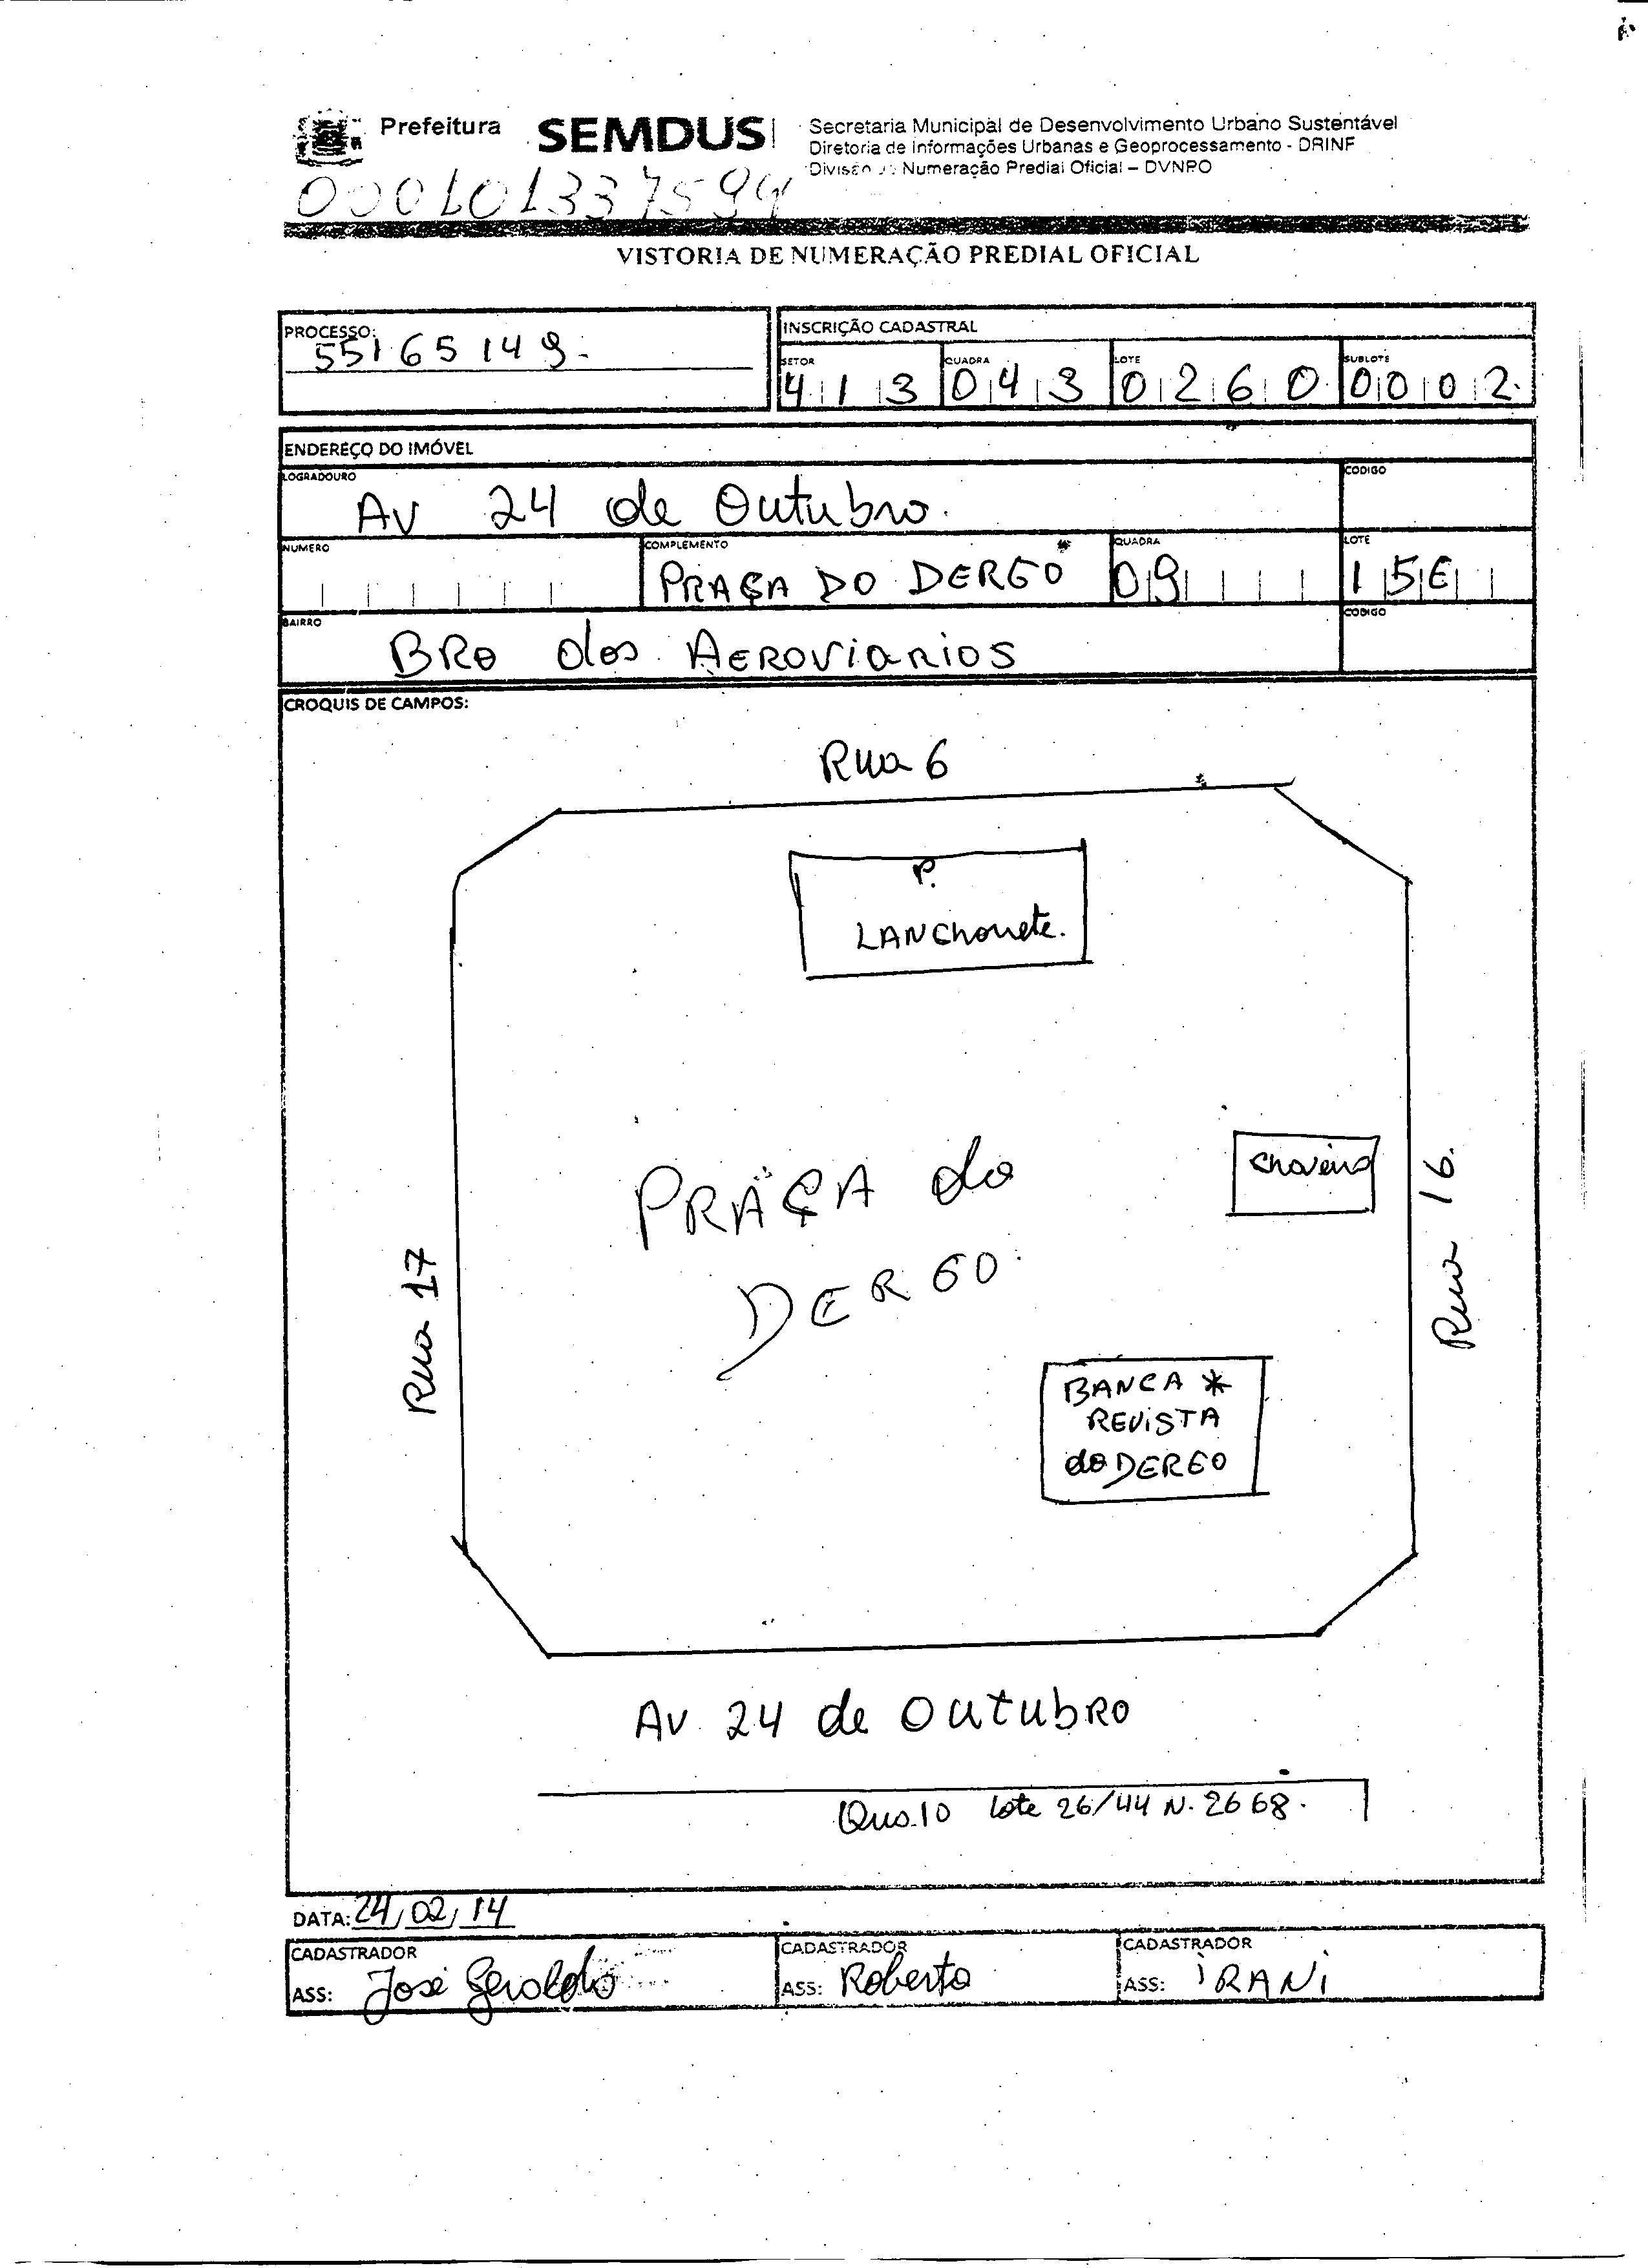 Prefeitura SEMDUS
Secretaria Municipal de Desenvolvimento Urbano Sustentável
Diretoria de Informações Urbanas e Geoprocessamento - DRINF
Divisão Numeração Predial Oficial – DVNPO
VISTORIA DE NUMERAÇÃO PREDIAL OFICIAL
PROCESSO: 55165149
INSCRIÇÃO CADASTRAL
SETOR QUADRA LOTE SUBLOTE
413 043 0260 0002
ENDEREÇO DO IMÓVEL
LOGRADOURO CODIGO
Av 24 de Outubro.
NUMERO COMPLEMENTO QUADRA LOTE
PRAÇA DO DERGO 09 15E
BAIRRO CODIGO
BRO dos AEROViARiOS
CROQUIS DE CAMPOS:
Rua 6
P.
LANChonete.
PRAÇA do
DERGO.
chaveiro
Rua 16.
Rua 17
BANCA *
REViSTA
do DERGO
Av 24 de OutubRO
Qua.10 Lote 26/44 N. 2668.
DATA: 24/02/14
CADASTRADOR CADASTRADOR CADASTRADOR
ASS: José Geraldo ASS: Roberto ASS: iRANi